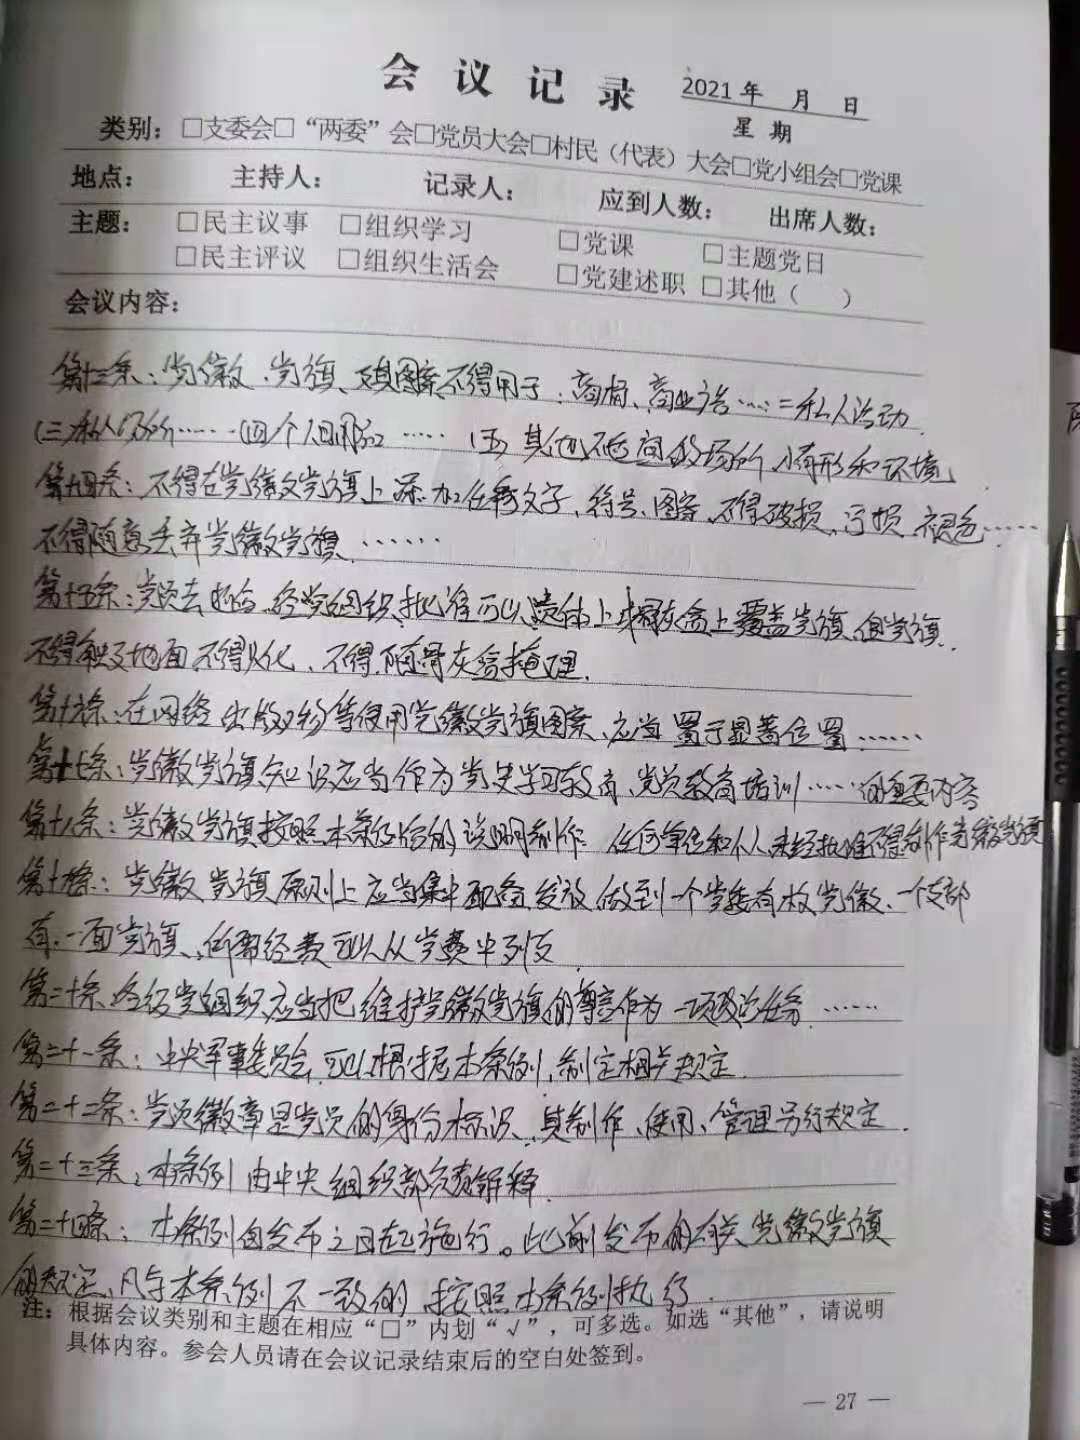 会议记录 2021年 月 日
星 期
类别：□支委会□“两委”会□党员大会□村民（代表）大会□党小组会□党课
地点： 主持人： 记录人： 应到人数： 出席人数：
主题： □民主议事 □组织学习 □党课 □主题党日
□民主评议 □组织生活会 □党建述职 □其他（ ）
会议内容：
第十三条：党徽、党旗、及其图案不得用于：商标、商业广告……二私人活动
(三)私人场所……(四)个人日用品……(五)其他不适宜的场所、情形和环境
第十四条：不得在党徽党旗上添加任何文字、符号、图案、不得破损、污损、褪色……
不得随意丢弃党徽党旗……
第十五条：党员去世后、经党组织批准可以遗体上或骨灰盒上覆盖党旗、但党旗
不得触及地面、不得火化、不得随骨灰盒掩埋.
第十六条：在网络出版物等使用党徽党旗图案、应当置于显著位置……
第十七条：党徽党旗知识应当作为党史学习教育、党员教育培训……的重要内容
第十八条：党徽党旗按照本条例后的说明制作 任何单位和个人未经批准不得制作党徽党旗
第十九条：党徽党旗原则上应当集中配备发放、做到一个党委有一枚党徽、一个支部
有一面党旗、所需经费可以从党费中列支
第二十条、各级党组织应当把维护党徽党旗的尊严作为一项政治任务……
第二十一条：中央军事委员会、可以根据本条例、制定相关规定.
第二十二条：党员徽章是党员的身份标识、其制作、使用、管理另行规定.
第二十三条：本条例由中央组织部负责解释.
第二十四条：本条例自发布之日起施行。此前发布的有关党徽党旗
的规定、凡与本条例不一致的、按照本条例执行.
注：根据会议类别和主题在相应“□”内划“√”，可多选。如选“其他”，请说明
具体内容。参会人员请在会议记录结束后的空白处签到。
— 27 —